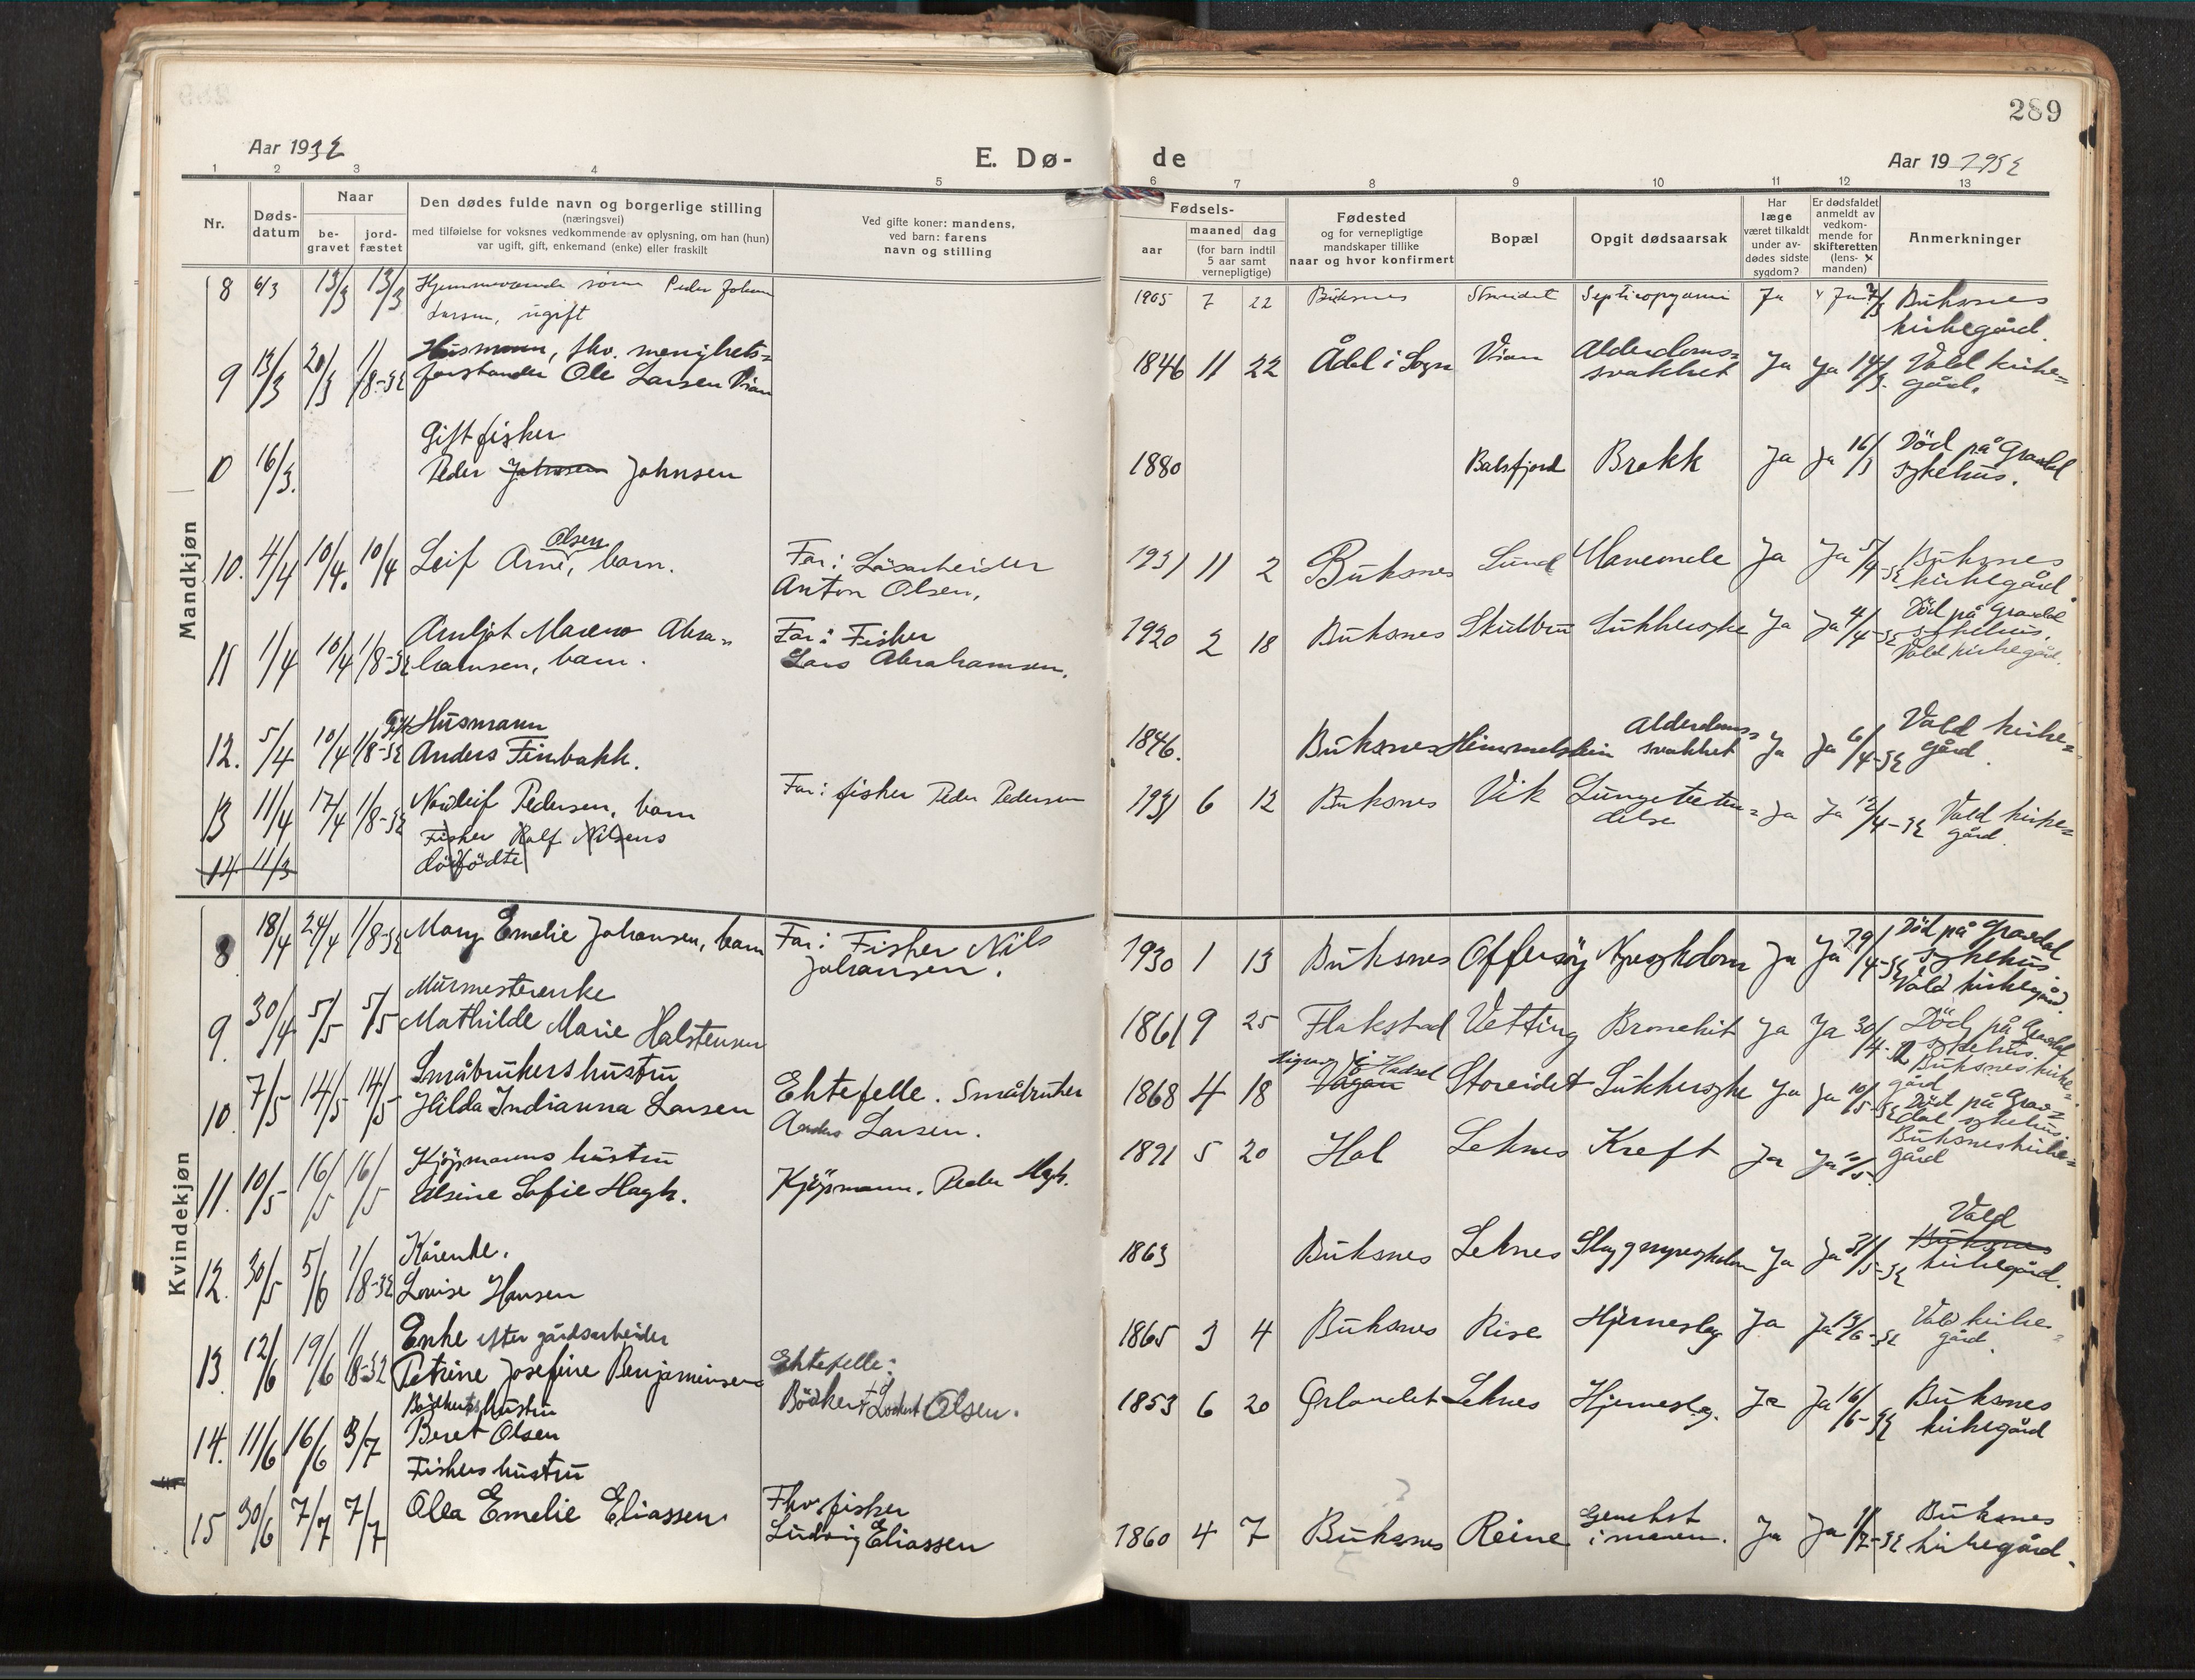 289
Aar 1932
E. Dø-
de
Aar 19 1932
1 2 3 4 5
6 7 8 9 10 11 12 13
Nr.
Døds-
datum
Naar
be-
gravet
jord-
fæstet
Den dødes fulde navn og borgerlige stilling
(næringsvei)
med tilføielse for voksnes vedkommende av oplysning, om han (hun)
var ugift, gift, enkemand (enke) eller fraskilt
Ved gifte koner: mandens,
ved barn: farens
navn og stilling
Fødsels-
aar
maaned dag
(for barn indtil
5 aar samt
vernepligtige)
Fødested
og for vernepligtige
mandskaper tillike
naar og hvor konfirmert
Bopæl
Opgit dødsaarsak
Har
læge
været tilkaldt
under av-
dødes sidste
sygdom?
Er dødsfaldet
anmeldt av
vedkom-
mende for
skifteretten
(lens-
manden)
Anmerkninger
Mandkjøn
8 6/3 13/3 13/3 Hjemmeværende sønn Peder Johan
Larsen, ugift
1905 7 22 Buksnes Storeidet Septicopyæmi Ja Ja 7/3 Buksnes
kirkegård.
9 13/3 20/3 1/8-32 Husmann, fhv. menighets-
forstander Ole Larsen Vian
1846 11 22 Ådal i Sogn Vian Alderdoms-
svakhet Ja Ja 14/3. Vald kirke-
gård.
10 16/3. Gift fisker
Peder Johnsen Johnsen
1880 Balsfjord Brokk Ja Ja 16/3 Död på Gravdal
sykehus.
10. 4/4 10/4. 10/4 Leif Arne Olsen, barn. Far: Lösarbeider
Anton Olsen,
1931 11 2 Buksnes Lund Ja Ja 5/4-32 Buksnes
kirkegård.
11 1/4 10/4 1/8-32 Arnljot Mareno Abra-
hamsen, barn. Far: Fisker
Lars Abrahamsen.
1920 2 18 Buksnes Skulbru Sukkersyke Ja Ja 4/4-32 Död på Gravdal
sykehus.
Vald kirkegård.
12. 5/4 10/4 1/8-32 Gift Husmann
Anders Finbakk.
1846. Buksnes Himmelstein Alderdoms-
svakhet Ja Ja 6/4-32 Vald kirke-
gård.
13 11/4 17/4 1/8-32 Nordleif Pedersen, barn Far: fisker Peder Pedersen
1931 6 12 Buksnes Vik Lungebeten-
delse Ja Ja 12/4-32 Vald kirke-
gård.
14 11/3 Fisker Rolf Nilsens
dödfödte
Kvindekjøn
8 18/4 24/4 1/8-32 Mary Emelie Johansen, barn Far: Fisker Nils
Johansen.
1930 1 13 Buksnes Offersöy Nyresykdom Ja Ja 19/4-32 Död på Gravdal
sykehus.
Vald kirkegård.
9. 30/4 5/5 5/5 Murmesterenke
Mathilde Marie Halstensen
1861 9 25 Flakstad Vetting Bronchit Ja Ja 30/4-32 Död på Gravdal
sykehus.
Buksnes kirke-
gård
10. 7/5 14/5 14/5 Småbrukers hustru
Hilda Indianna Larsen Ektefelle. Småbruker
Anders Larsen.
1868 4 18 Vågan i Hadsel Storeidet Sukkersyke Ja Ja 10/5-32 Död på Grav-
dal sykehus.
Buksnes kirke-
gård
11. 10/5 16/5 16/5 Kjöpmanns hustru
Alsine Sofie Hagh. Kjöpmann. Peder Hagh.
1891 5 20 Hol Leknes Kreft Ja Ja 10/5.
12. 30/5 5/6 1/8-32 Kårenke.
Lovise Hansen
1863 Buksnes Leknes Slag Ja Ja 31/5-32 Vald
Buksnes
kirkegård.
13. 12/6 19/6 1/8-32 Enke efter gårdsarbeider
Petrine Josefine Benjaminsen
1865 3 4 Buksnes Rise Hjerneslag Ja Ja 13/6-32 Vald kirke-
gård.
14. 11/6 16/6 3/7 Bödkers hustru
Beret Olsen Ektefelle:
Bödker Olsen.
1853 6 20 Ørlandet Leknes Hjerneslag. Ja Ja 16/6-32 Buksnes
kirkegård
15 30/6 7/7 7/7 Fiskers hustru
Olea Emelie Eliassen Fhv. fisker
Ludvig Eliassen
1860 4 7 Buksnes Reine i maven. Ja Ja 1/7-32 Buksnes
kirkegård.